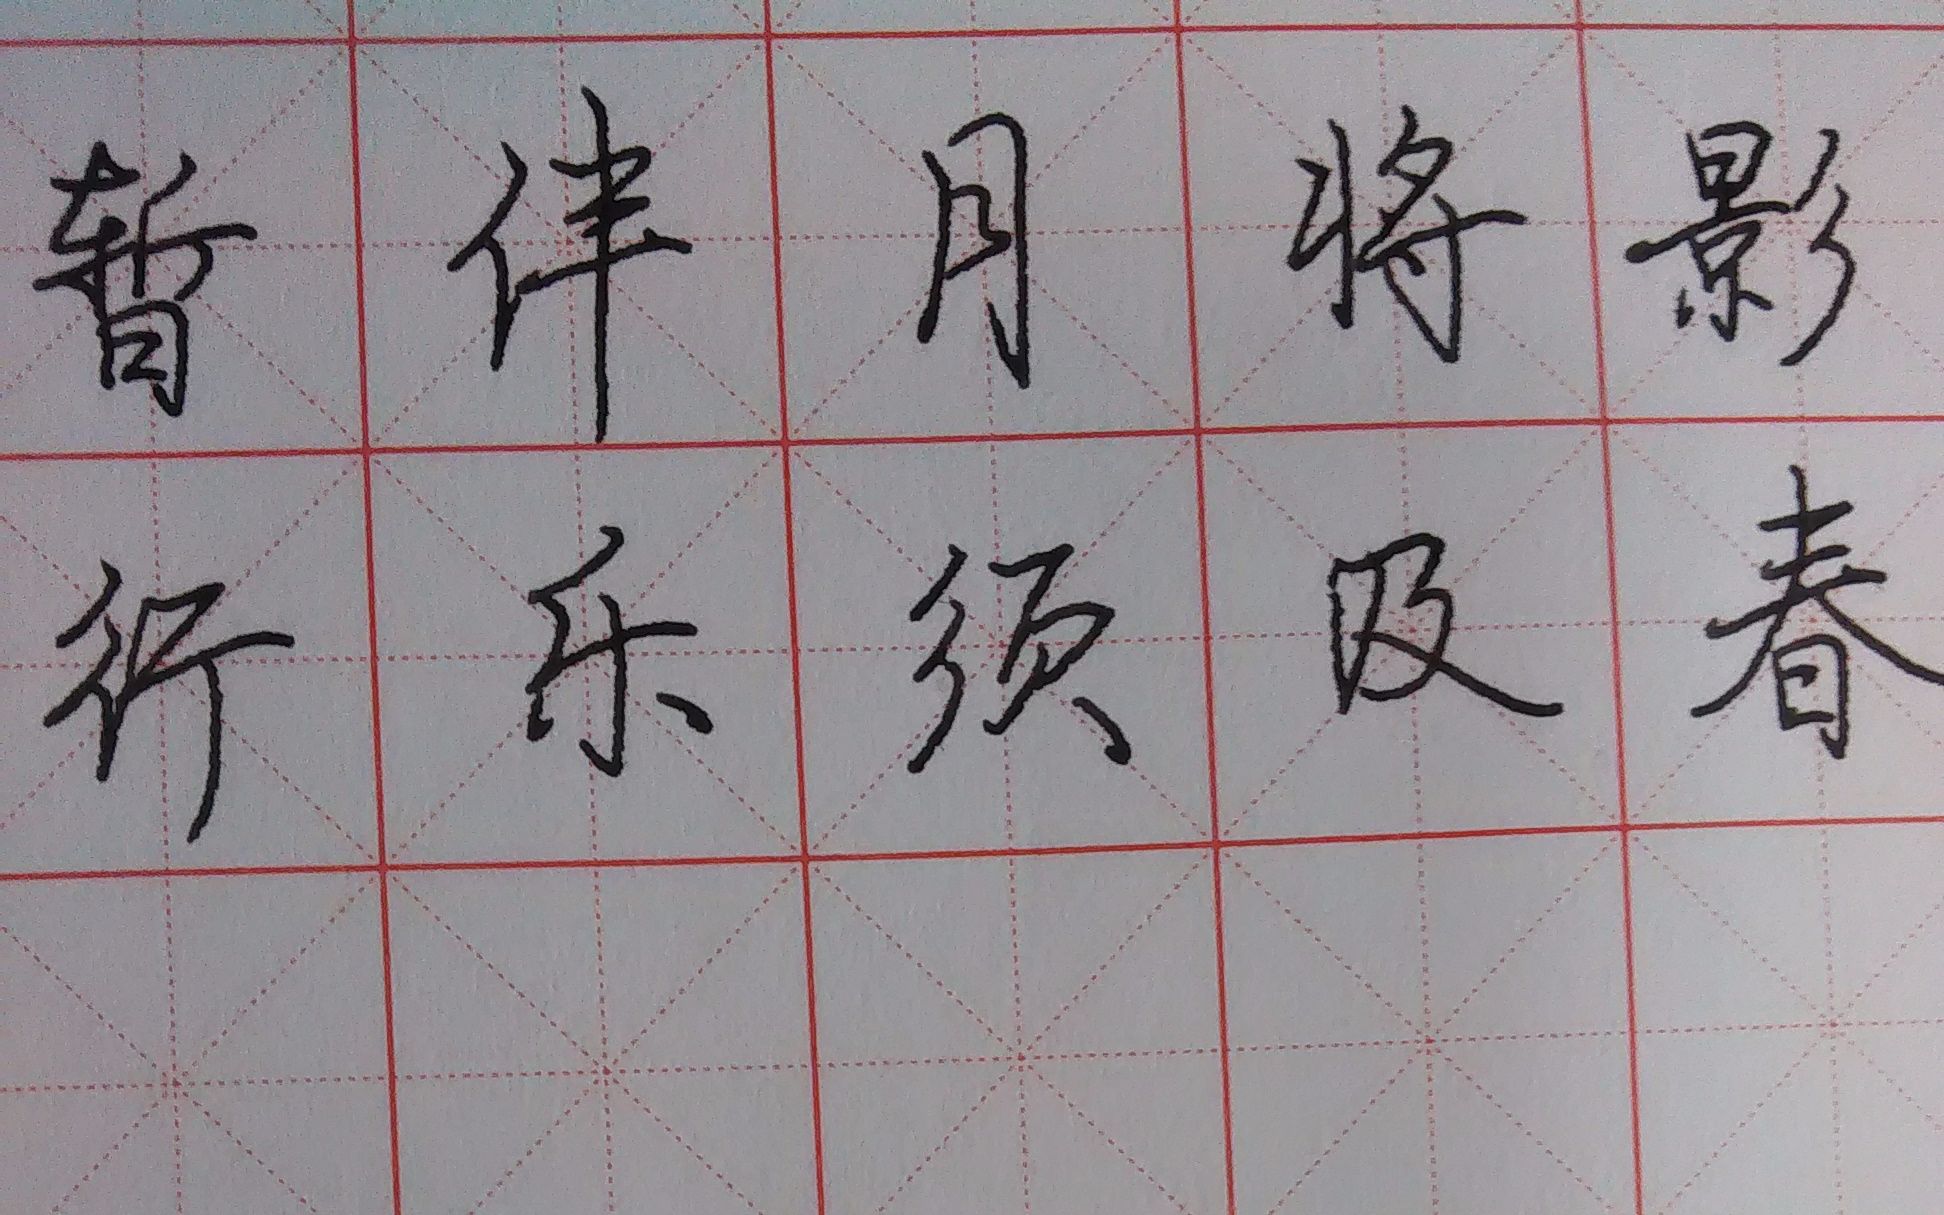 暂伴月将影
行乐须及春